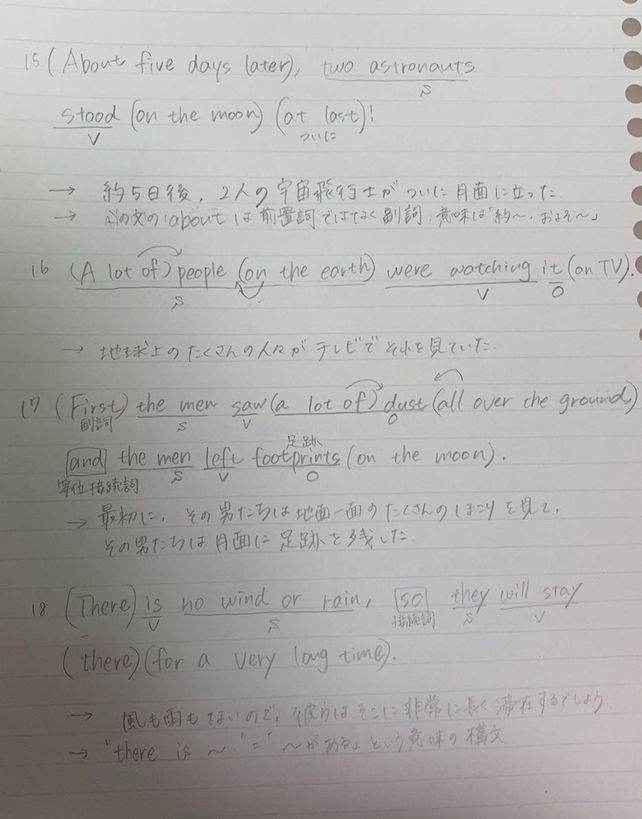 15 (About five days later), two astronauts
S
stood (on the moon) (at last)!
V ついに
→ 約5日後, 2人の宇宙飛行士がついに月面に立った
→ この文のaboutは前置詞ではなく副詞, 意味は「約〜, およそ〜」
16 (A lot of) people (on the earth) were watching it (on TV).
S V O
→ 地球上のたくさんの人々がテレビでそれを見ていた
17 (First) the men saw (a lot of) dust (all over the ground)
副詞 S V O
足跡
and the men left footprints (on the moon).
等位接続詞 S V O
→ 最初に, その男たちは地面一面のたくさんのほこりを見て,
その男たちは月面に足跡を残した
18 (There) is no wind or rain, so they will stay
V S 接続詞 S V
(there) (for a very long time).
→ 風も雨もないので, 彼らはそこに非常に長く滞在するでしょう
→ "there is 〜" = "〜がある」という意味の構文